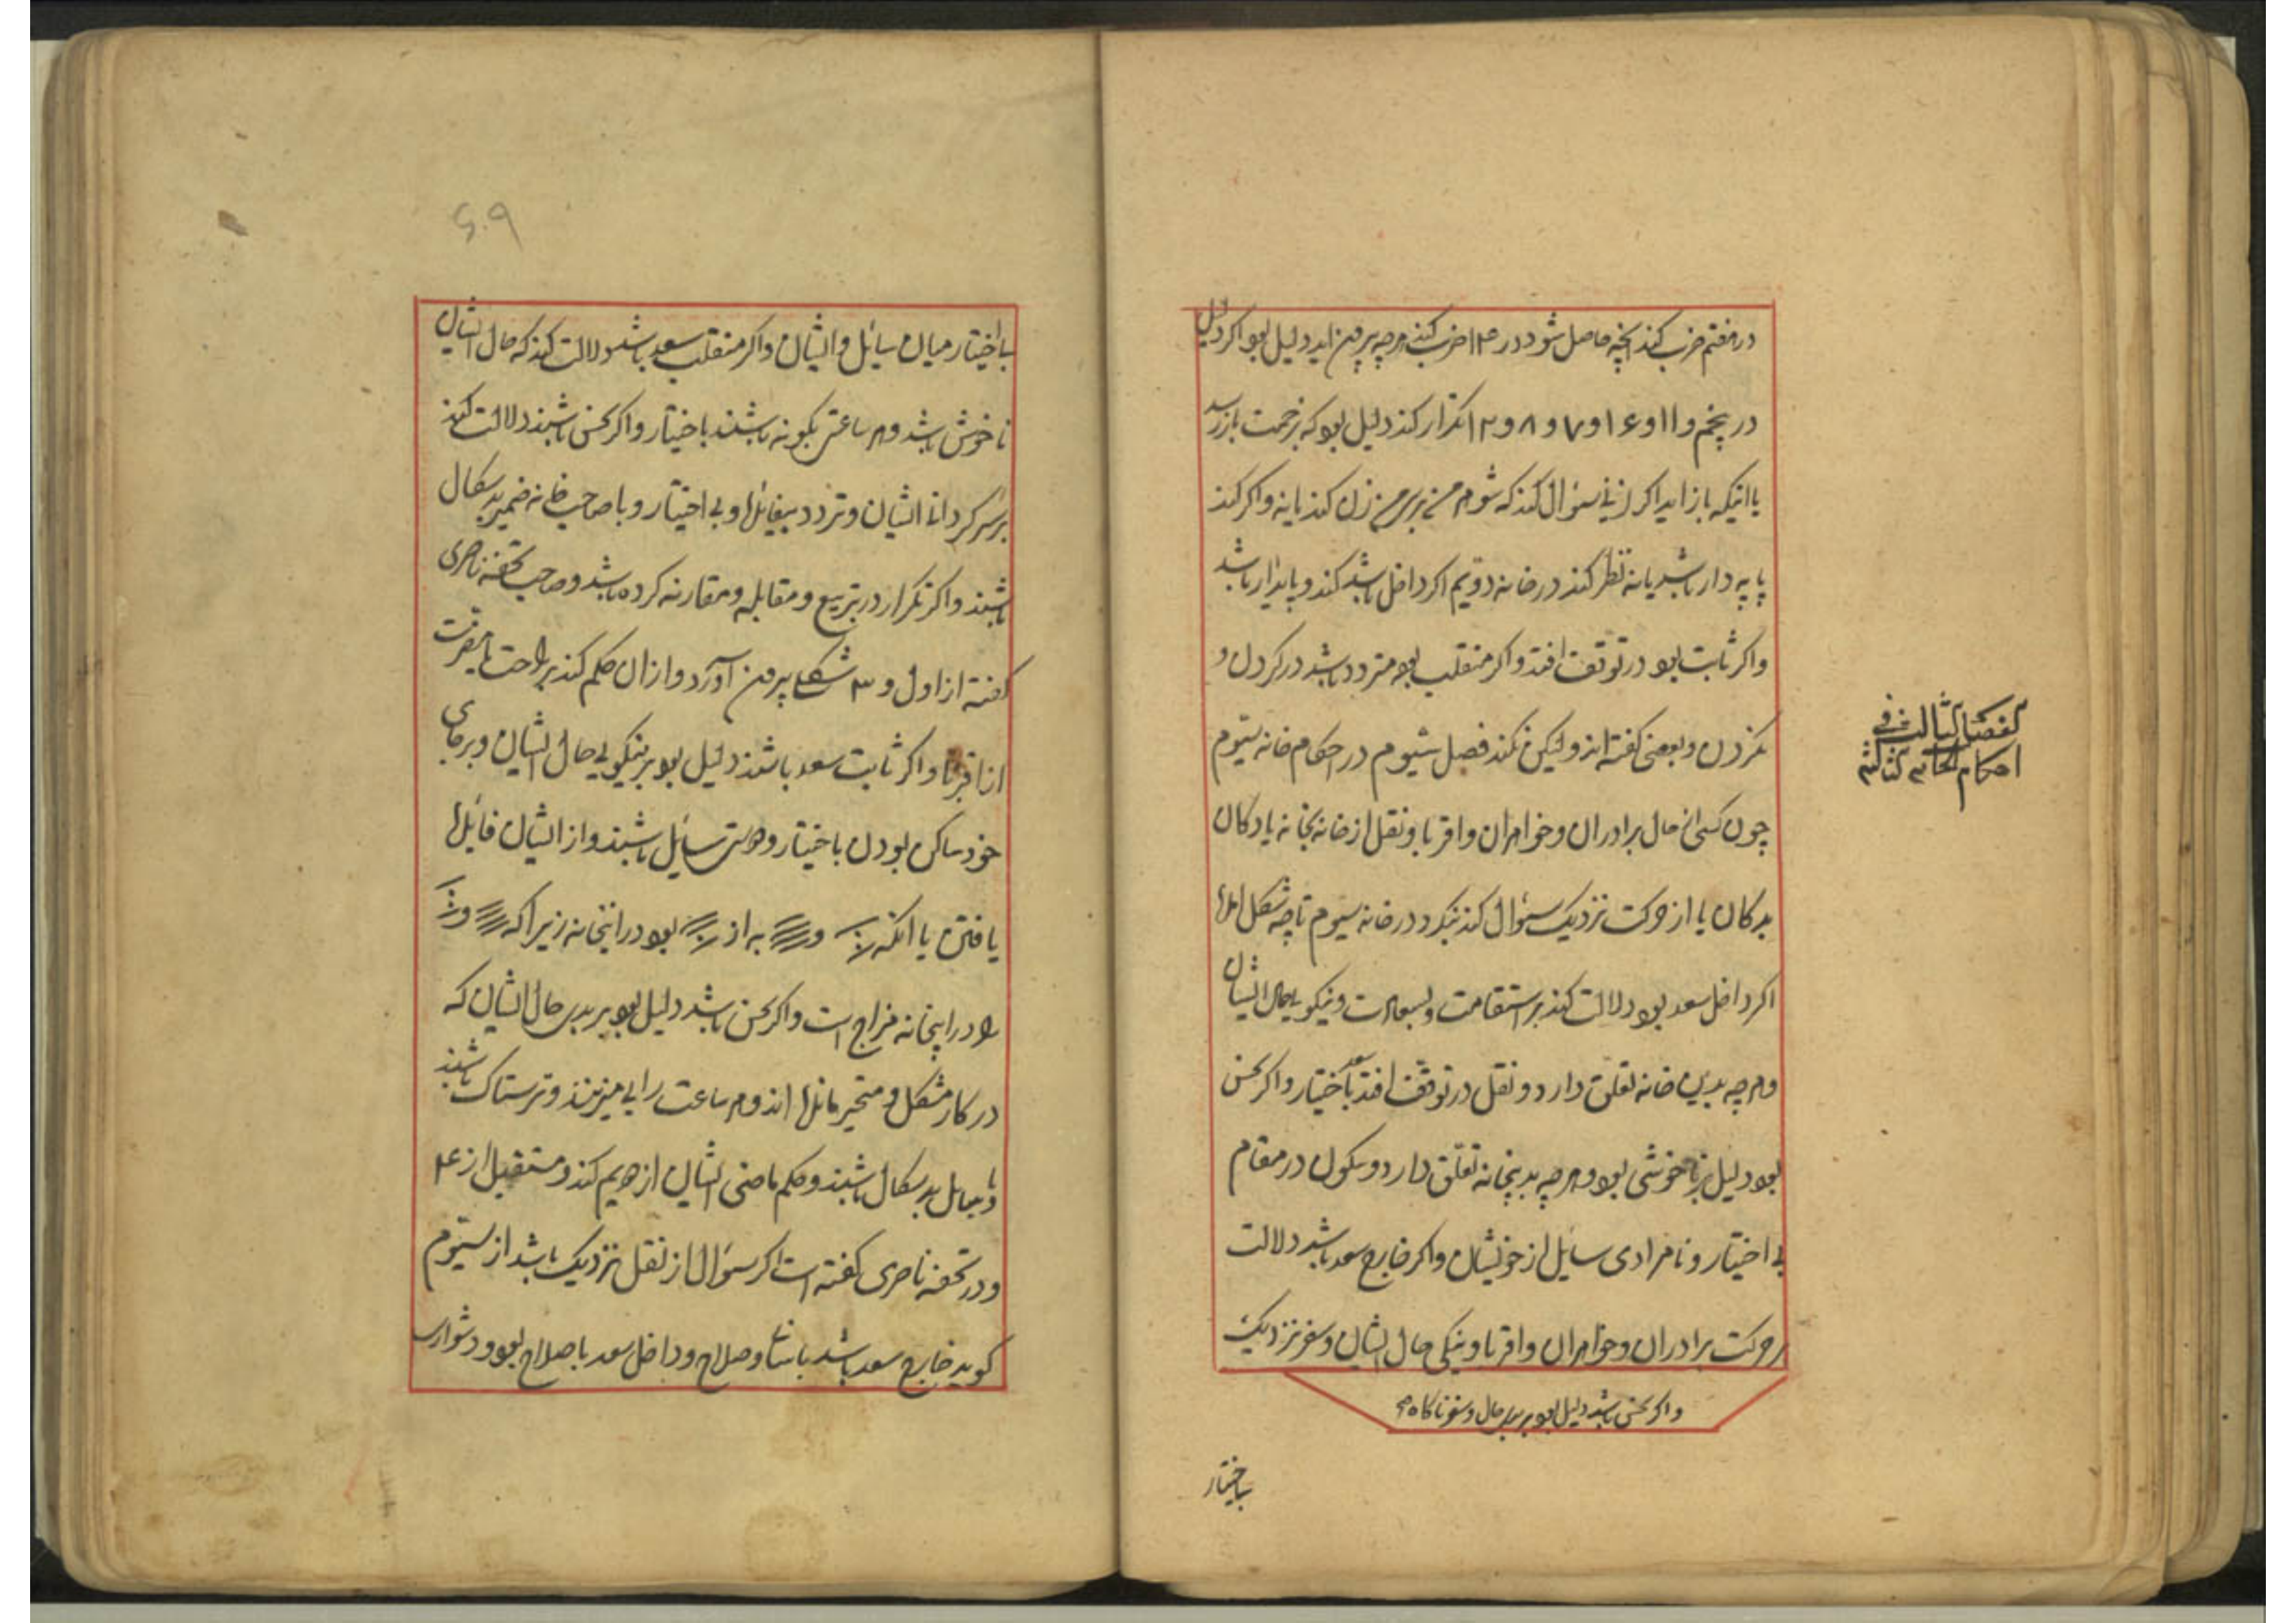 در هفتم ضرب کند آنچه حاصل شود در ۱۴ ضرب کند هرچه بیرون اید دلیل بود اکر دلیل
در پنجم و ۱۱ و ۱۶ و ۷ و ۸ و ۱۲ تکرار کند دلیل بود که بزحمت بازرسد
یا انیکه باز اید اکر زنی سئوال کند که شوهر من بر سر من زن کند یا نه و اکر کند
پایه دار باشد یا نه نظر کند در خانه دویم اکر داخل باشد کند و پایدار باشد
واکر ثابت بود در توقف افتد و اکر منقلب بود متردد باشد در کردن و
نکردن و بعضی کفته اند ولیکن نکند فصل سیوم در احکام خانه سیوم
الفصل الثالث فی
احکام الخانه الثالثه
چون کسی از حال برادران و خواهران و اقربا و نقل از خانه بخانه یا دکان
بدکان یا از حرکت نزدیک سئوال کند بنکرد در خانه سیوم تا چه شکل
اکر داخل سعد بود دلالت کند بر استقامت و سعادت و نیکویی حال ایشان
و هرچه بدین خانه تعلق دارد و نقل در توقف افتد باختیار واکر نحس
سعد
بود دلیل بر ناخوشی بود و هرچه بدینخانه تعلق دارد و سکون در مقام
بی اختیار و نامرادی سایل از خویشان واکر خارج سعد باشد دلالت
بر حرکت برادران و خواهران و اقربا و نیکی حال ایشان و سفر نزدیک
واکر نحس باشد دلیل بود بر بدی حال و سفر ناکاه
باختیار
۶۰۹
باختیار میان سایل و ایشان واکر منقلب سعد باشد دلالت کند که حال ایشان
ناخوش باشد و هر ساعتی بکونه باشند باختیار واکر نحس باشند دلالت کند
بر سرکردانی ایشان و تردد بیفایده و بی اختیار و با صاحب خانه ضمیر بدسکال
باشند واکر تکرار در تربیع و مقابله و مقارنه کرده باشد و صاحب تحفه ناصری
کفته از اول و ۳ شکلی بیرون آورد و از ان حکم کند بر راحت یا مضرت
از اقربا واکر ثابت سعد باشند دلیل بود بر نیکویی حال ایشان و بر جای
خود ساکن بودن باختیار و دوستی سایل باشند و از ایشان فایده
یافتن یا انکه و به از بود در اینخانه زیرا که و
را در اینخانه مزاج است واکر نحس باشد دلیل بود بر بدی حال ایشان که
در کار مشکل و متحیر مانده اند و هر ساعت رایی میزنند و ترسناک باشند
و با سایل بدسکال باشند و حکم ماضی ایشان از دویم کند و مستقبل از ۴
و در تحفه ناصری کفته است اکر سئوال از نقل نزدیک باشد از سیوم
کوید خارج سعد باشد با نشاط و صلاح و داخل سعد با صلاح بود و دشوار